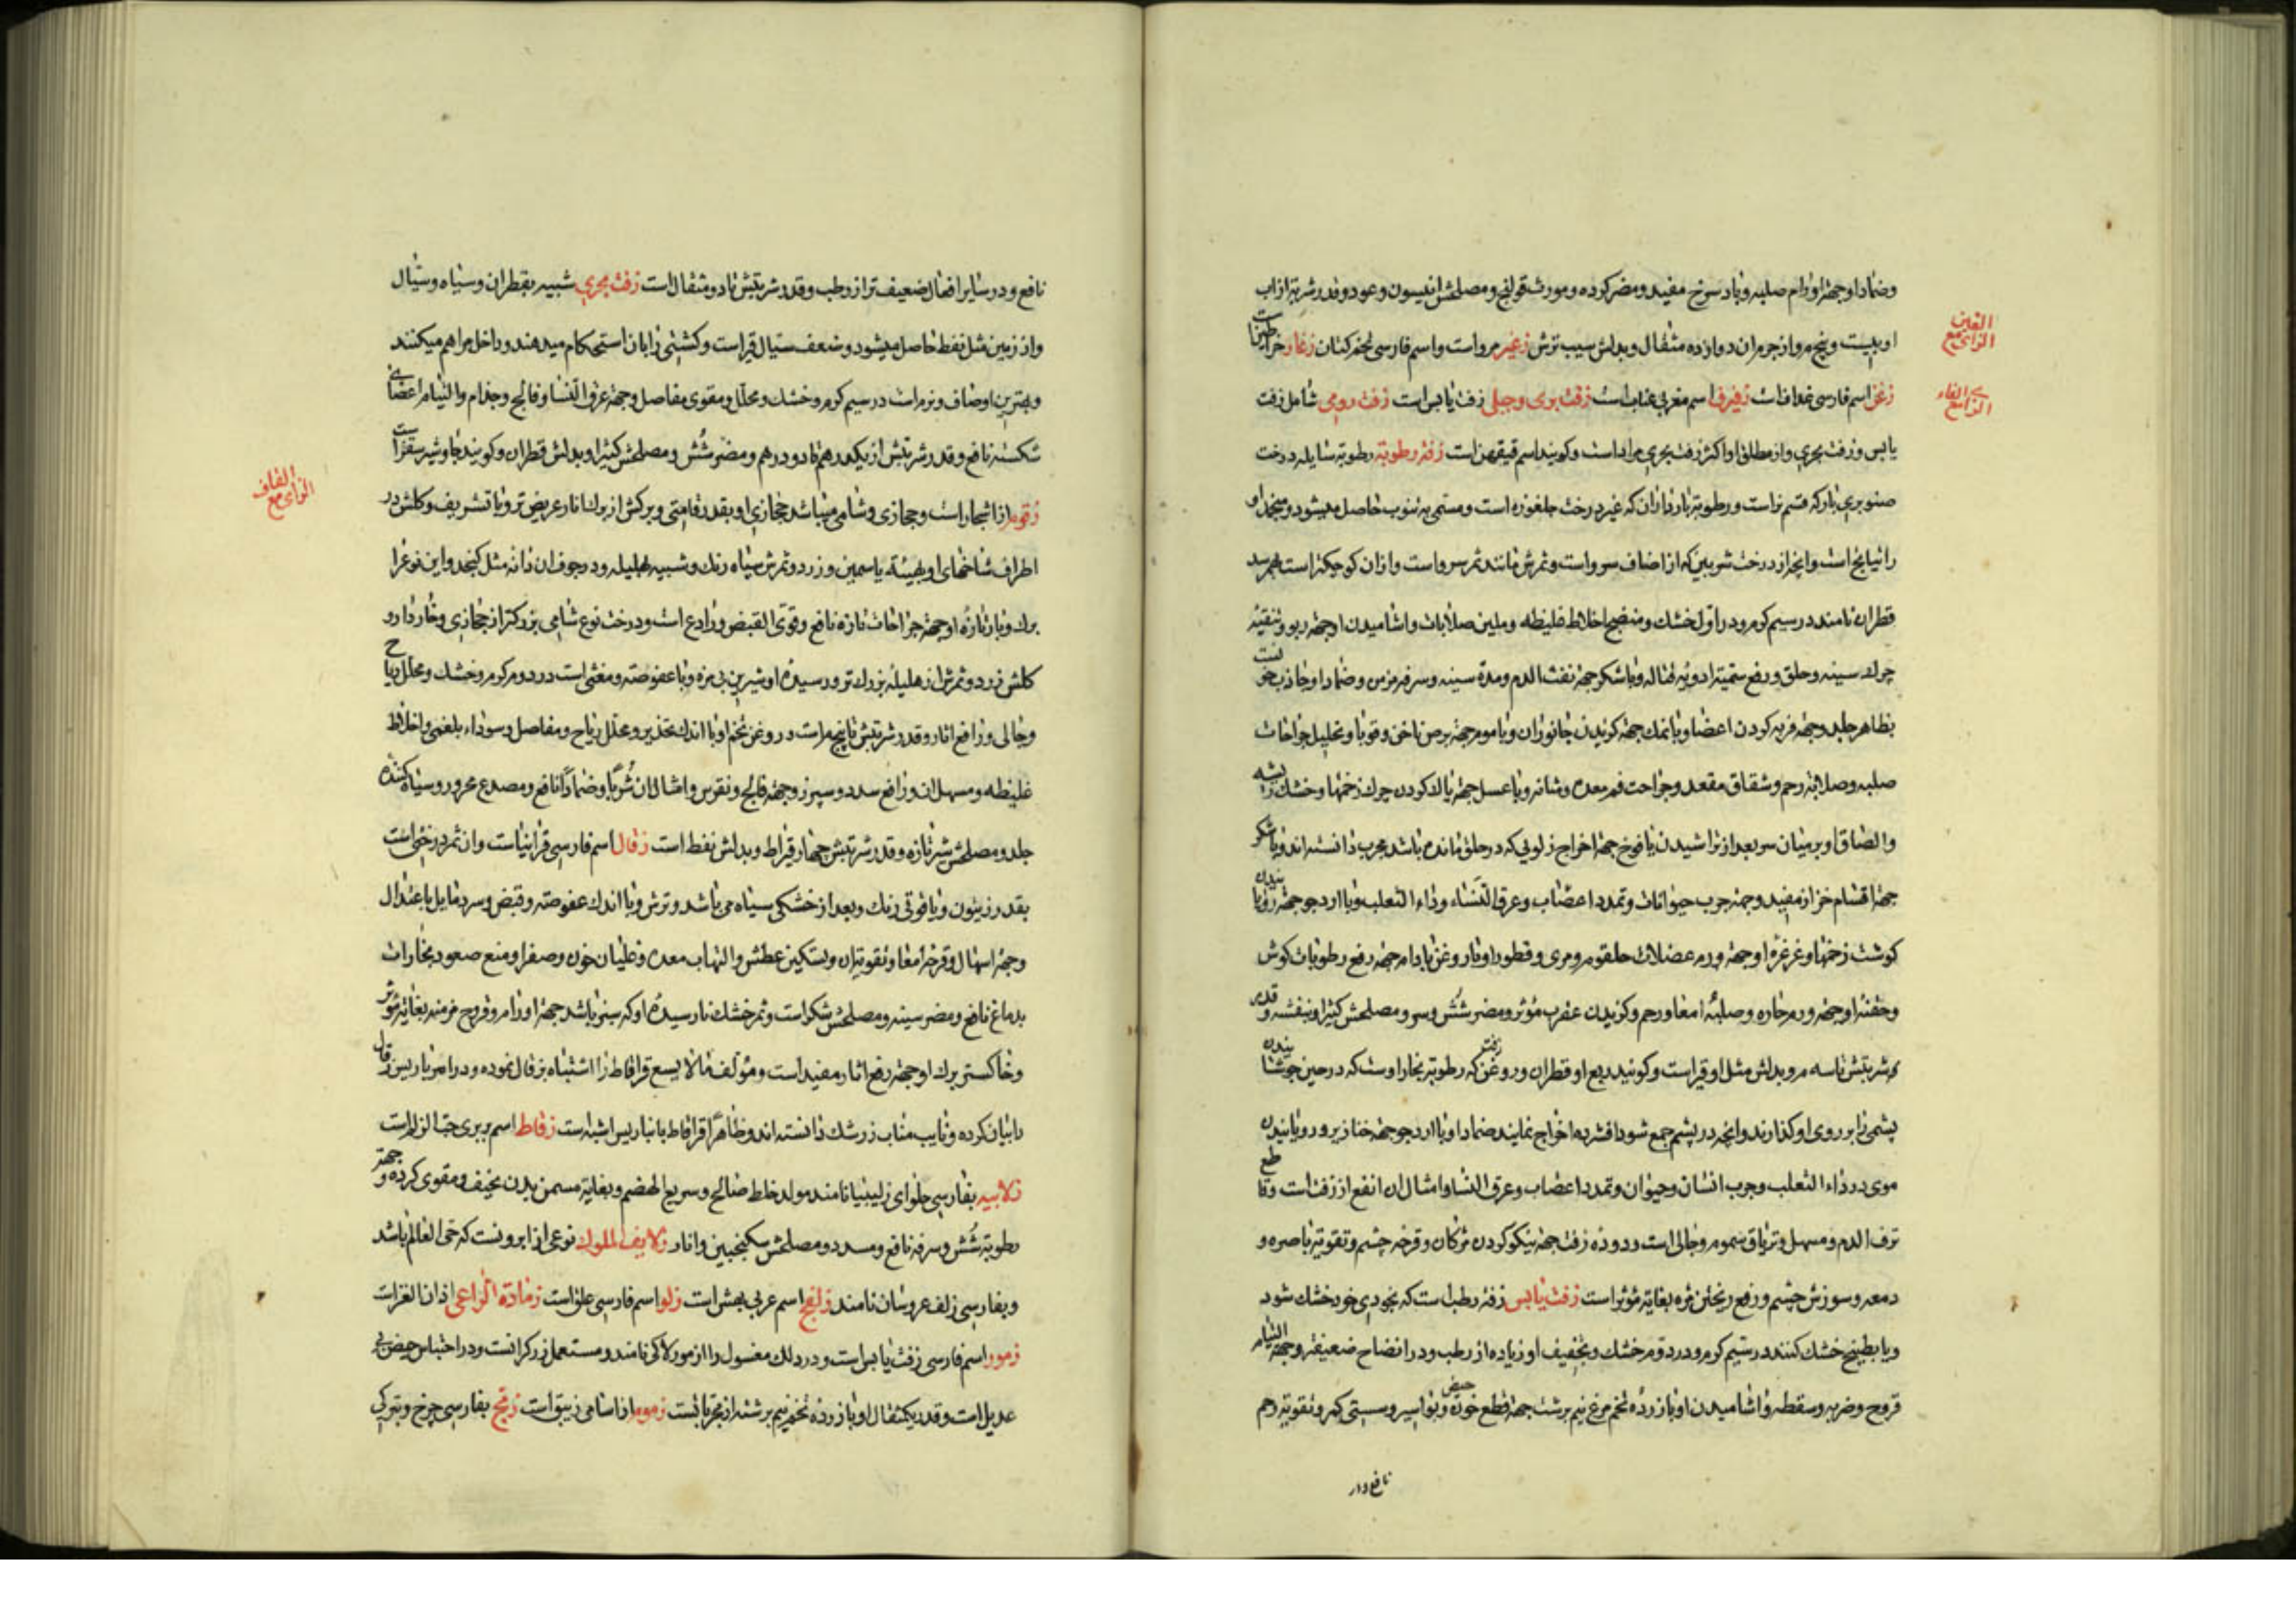 وضماد او جهة اورام صلبه و باد سرخ مفید و مضر کرده و مورث قولنج و مصلحش انیسون و عود و قدر شربة از اب
او بیست و پنج مر و از جرم ان دوازده مثقال و بدلش سیب ترش زعبر مرو است و اسم فارسی تخم کتان زغار خراطین است
الغین
الزای مع
زغن اسم فارسی غداف است زفیزف اسم مغربی عناب است زفت بری و جبلی زفت یابس است زفت رومی شامل زفت
الزای مع الفاء
یابس و زفت بحری و از مطلق او اکثر زفت بحری مراد است و کویند اسم قیقهن است زفت رطوبة رطوبة سایله درخت
صنوبری نارکه قسم نر است و رطوبة بارد از ان که غیر درخت جلغوزه است و مسمی به تنوب حاصل میشود و منجمد او
راتیانج است و انچه از درخت شربین که از اصناف سرو است و ثمرش مانند ثمر سرو است و از ان کوچکتر است بهم رسد
قطران نامند در سیم کرم و در اول خشک و منضج اخلاط غلیظه و ملین صلابات و اشامیدن او جهة ربو و تنقیه
چرک سینه و حلق و رفع سمیة ادویه قتاله و با شکر جهة نفث الدم و مده سینه و سرفه مزمن و ضماد او جاذب خون است
بظاهر جلد و جهة فربه کردن اعضا و با نمک جهة کزیدن جانوران و با موم جهة برص ناخن و قوبا و تحلیل جراحات
صلبه و صلابة رحم و شقاق مقعد و جراحت فم معده و مثانه و با عسل جهة پاک کردن چرک زخمها و خشک ریشه
و الصاق او بر میان سر بعد از تراشیدن یافوخ جهة اخراج زلوئی که در حلق مانده باشد مجرب دانسته اند و با شکر
جهة اقسام خراز مفید و جهة جرب حیوانات و تمدد اعصاب و عرق النساء و داء الثعلب و با ارد جو جهة رویانیدن
کوشت زخمها و غرغره او جهة ورم عضلات حلقوم و مری و قطور او با روغن بادام جهة رفع رطوبات کوش
و حقنه او جهة ورم حاره و صلبه امعا و رحم و کزیدن عقرب مؤثر و مضر شش و سر و مصلحش کثیرا و بنفشه و قدر
شربتش تا سه مر و بدلش مثل او قیر است و کویند ربع او قطران و روغن زفت که رطوبة بخار اوست که در حین جوشانیدن
پشمی را بر روی او کذارند و انچه در پشم جمع شود افشرده اخراج نمایند ضماد او با ارد جو جهة خنازیر و رویانیدن
موی در داء الثعلب و جرب انسان و حیوان و تمدد اعصاب و عرق النسا و امثال ان انفع از زفت است و قاطع
نزف الدم و مسهل و تریاق سموم و جالی است و دوده زفت جهة نیکو کردن مژکان و قرحه چشم و تقویة باصره و
دمعه و سوزش چشم و رفع ریختن مژه بغایة مؤثر است زفت یابس زفت رطب است که بخودی خود خشک شود
و یا بطبخ خشک کنند در سیم کرم و در دوم خشک و تجفیف او زیاده از رطب و در انضاج ضعیفتر و جهة التیام
قروح و ضربه و سقطه و اشامیدن او با زرده تخم مرغ نیم برشت جهة قطع خون حیض و بواسیر و سستی کمر و تقویة رحم
نافع و در
نافع و در سایر افعال ضعیف تر از رطب و قدر شربتش تا دو مثقال است زفت بحری شبیه بقطران و سیاه و سیال
و از زمین مثل نفط حاصل میشود و ضعف سیال قیر است و کشتی را با ان استحکام میدهند و داخل مراهم میکنند
و بهترین اوصاف و نرم است در سیم کرم و خشک و محلل و مقوی مفاصل و جهة عرق النسا و فالج و جذام و التیام اعضای
شکسته نافع و قدر شربتش از یکدرهم تا دو درهم و مضر شش و مصلحش کثیرا و بدلش قطران و کویند جاوشیر
الزای مع القاف
زقوم از اشجار است و حجازی و شامی میباشد حجازی او بقدر قامتی و برکش از برک انار عریض تر و با تشریف و کلش در
اطراف شاخهای او بهیئة یاسمین و زرد و ثمرش سیاه رنک و شبیه بهلیله و در جوف ان دانه مثل کنجد و این نوع را
برک و بار تازه او جهة جراحات تازه نافع و قوی القبض و رادع است و درخت نوع شامی بزرکتر از حجازی و خار دار و
کلش زرد و ثمرش از هلیله بزرک تر و رسیده او شیرین بی مزه و با عفوصة و مغثی است در دوم کرم و خشک و محلل ریاح
و جالی و رافع اثار و قدر شربتش تا پنج مر است و روغن تخم او با اندک تخدیر و محلل ریاح و مفاصل و سوداء بلغمی و اخلاط
غلیظه و مسهل ان و رافع سدد و سپرز و جهة فالج و نقرس و امثال ان شربا و ضمادا نافع و مصدع محرور و سیاه کننده
جلد و مصلحش شیر تازه و قدر شربتش چهار قیراط و بدلش نفط است زقال اسم فارسی قرانیا است و ان ثمر درختی است
بقدر زیتون و یاقوتی رنک و بعد از خشکی سیاه می باشد و ترش و با اندک عفوصة و قبض و سرد مایل باعتدال
و جهة اسهال و قرحه امعا و تقویة ان و تسکین عطش و التهاب معده و غلیان خون و صفرا و منع صعود بخارات
بدماغ نافع و مضر سینه و مصلحش شکر است و ثمر خشک نارسیده او که سبز باشد جهة اورام و قروح مزمنه بغایة مؤثر
و خاکستر برک او جهة رفع اثار مفید است و مؤلف مالایسع قرافاط را اشتباه بزقال نموده و در امبرباریس زقال
را بیان کرده و نایب مناب زرشک دانسته اند و ظاهرا قرافاط بانبارباریس اشبه است زقاط اسم بربری حب الزلم است
زلابیه بفارسی حلوای زلیبیا نامند مولد خلط صالح و سریع الهضم و بغایة مسمن بدن نحیف و مقوی کرده و جهة
رطوبة شش و سرفه نافع و مسدد و مصلحش سکنجبین و انار زلایف الملوک نوعی از ابرونست که حی العالم باشد
و بفارسی زلف عروسان نامند زلفج اسم عربی بهش است زلو اسم فارسی علق است زمارة الراعی اذان العنز است
زمور اسم فارسی زفت یابس است و در دلک مغسول را ازمور لاکی نامند و مستعمل زرکرانست و در احتباس حیض بی
عدیل است و قدر یکمثقال او با زرده تخم نیم برشته از مجربانست زموم از اسامی زیبق است زمج بفارسی چرخ و بترکی